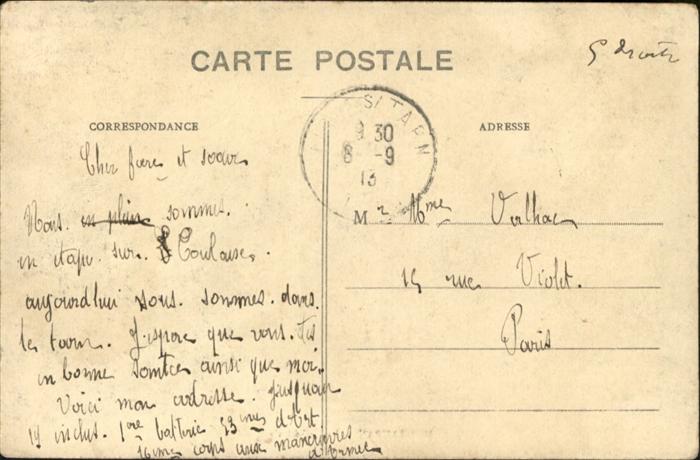 CARTE POSTALE
G droite
CORRESPONDANCE
ADRESSE
S/ TARN
9 30
8 -9
13
Cher frere et soeur
Nous en plein sommes.
en etape sur Toulouse.
aujourdhui nous sommes dans
le tarn. J'espere que vous
en bonne santée ainsi que moi.
Voici mon adresse. jusquau
19 inclus. 1ere batterie mes d'Art.
16me corps aux manoeuvres
d'Armee
Mr Mme Valhac
15 rue Violet.
Paris